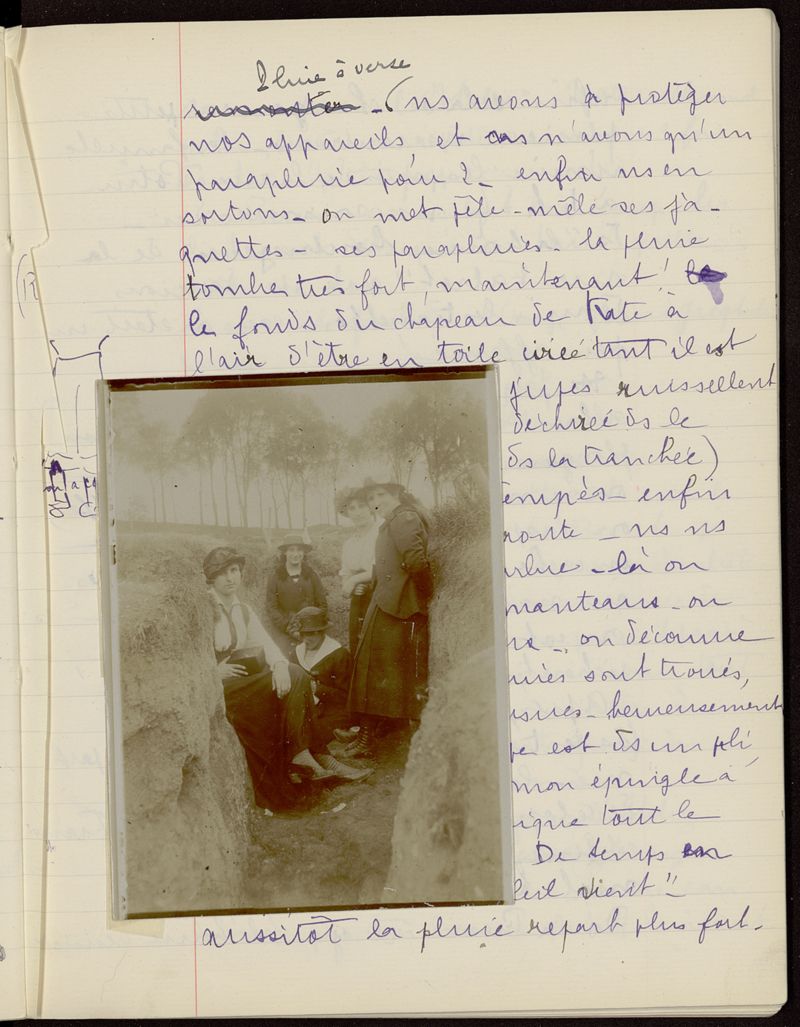 Pluie à verse
(ns avons à protéger
nos appareils et ns n'avons qu'un
parapluie pour 2 - enfin ns en
sortons - on met pêle-mêle ses ja-
quettes - ses parapluies - la pluie
tombe très fort, maintenant!
le fonds du chapeau de Kate à
l'air d'être en toile cirée tant il est
jupes ruissellent
déchirée ds le
ds la tranchée)
empés - enfin
route - ns ns
là on
manteaux - on
on découvre
sont troués,
heureusement
est ds un pli
mon épingle à
ique tout le
De temps en
leil vient"
aussitôt la pluie repart plus fort -